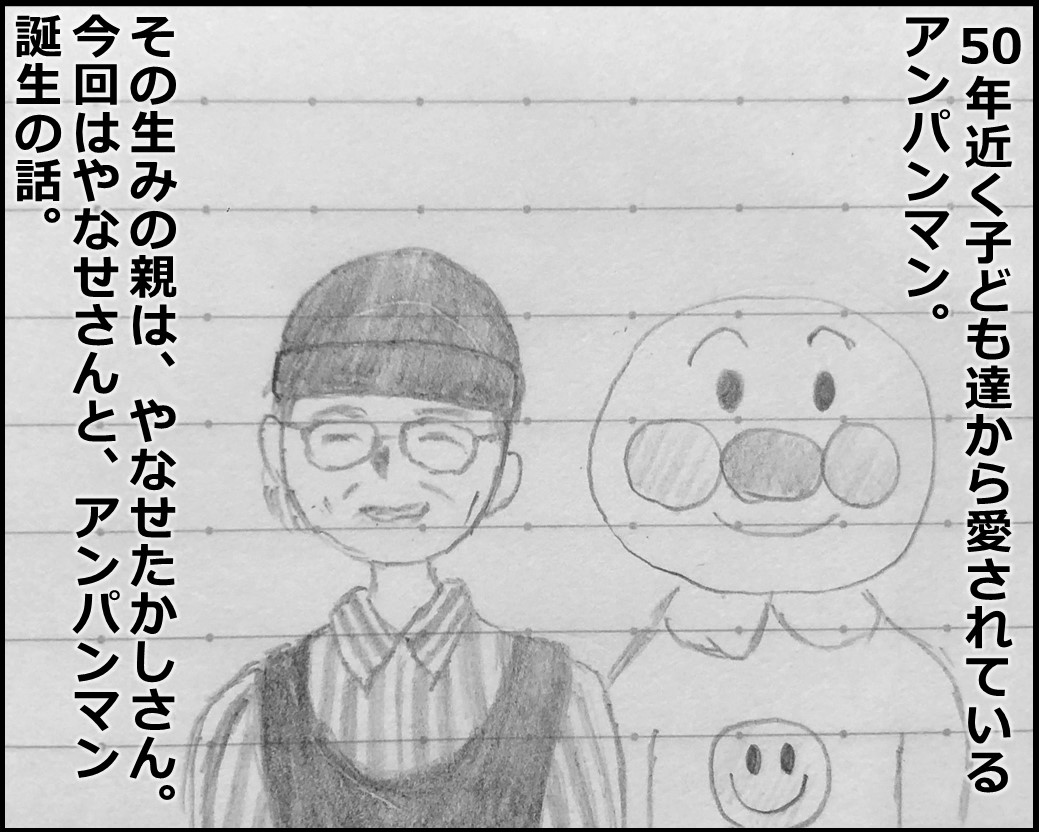 50年近く子ども達から愛されている
アンパンマン。
その生みの親は、やなせたかしさん。
今回はやなせさんと、アンパンマン
誕生の話。